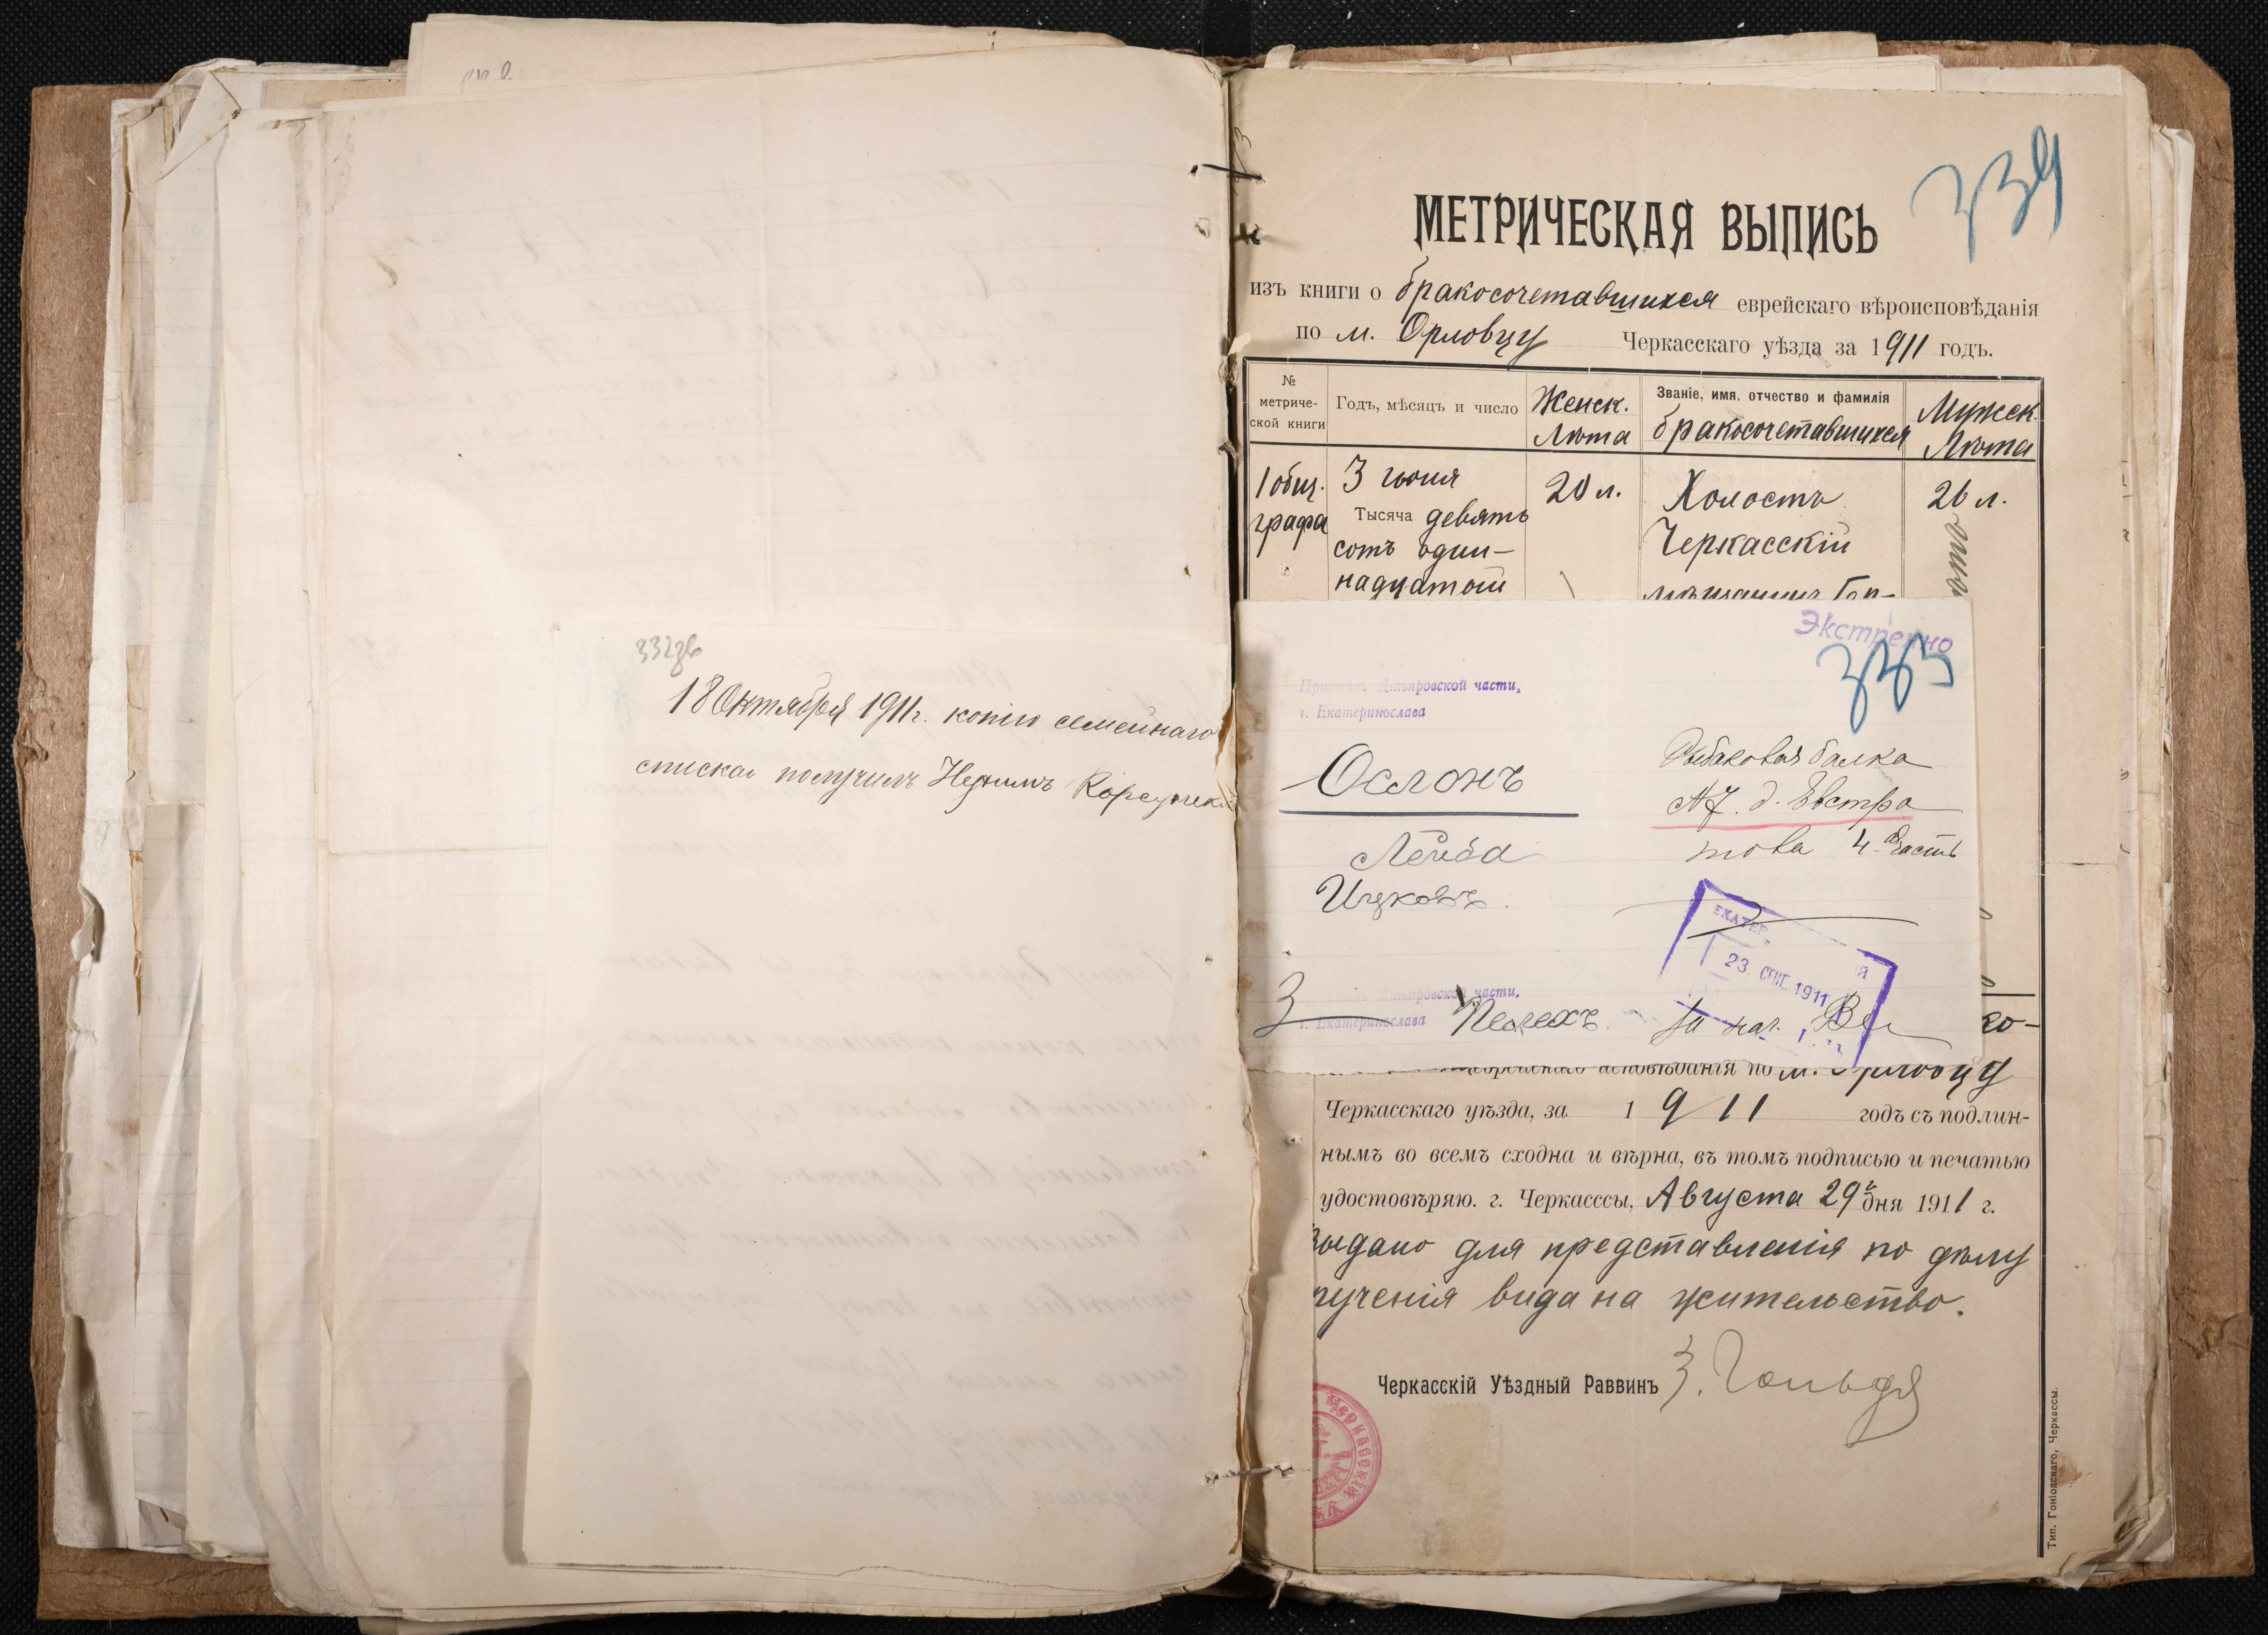 332 об
18 Октября 1911 г. копію семейнаго
списка получилъ Нухимъ Корсунск
339
МЕТРИЧЕСКАЯ ВЫПИСЬ
изъ книги о бракосочетавшихся еврейскаго вѣроисповѣданія
по м. Орловцу Черкасскаго уѣзда за 1911 годъ.
№ метриче-ской книги
Годъ, мѣсяцъ и число
Женск. Лѣта
Званіе, имя, отчество и фамилія бракосочетавшихся
Мужск. Лѣта
1 общ. графа
3 іюня
Тысяча девять
сотъ один-
надцатый
20 л.
Холостъ
Черкасскій
26 л.
Экстренно
333
Приставъ Днѣпровской части,
г. Екатеринослава
Ослонъ
Лейба
Ицковъ.
Рыбаковая балка
№7. д. Евстра
това 4-я часть
ЕКАТЕР
23. СЕНТ. 1911
Днѣпровской части,
г. Екатеринослава
еврейскаго исповѣданія по м. Орловцу
Черкасскаго уѣзда, за 1911 годъ съ подлин-
нымъ во всемъ сходна и вѣрна, въ томъ подписью и печатью
удостовѣряю. г. Черкасссы, Августа 29 дня 1911 г.
Выдано для представленія по дѣлу
лученія вида на жительство.
Черкасскій Уѣздный Раввинъ З. Гольд
Черкасскій
Тип. Гоніодскаго, Черкассы.